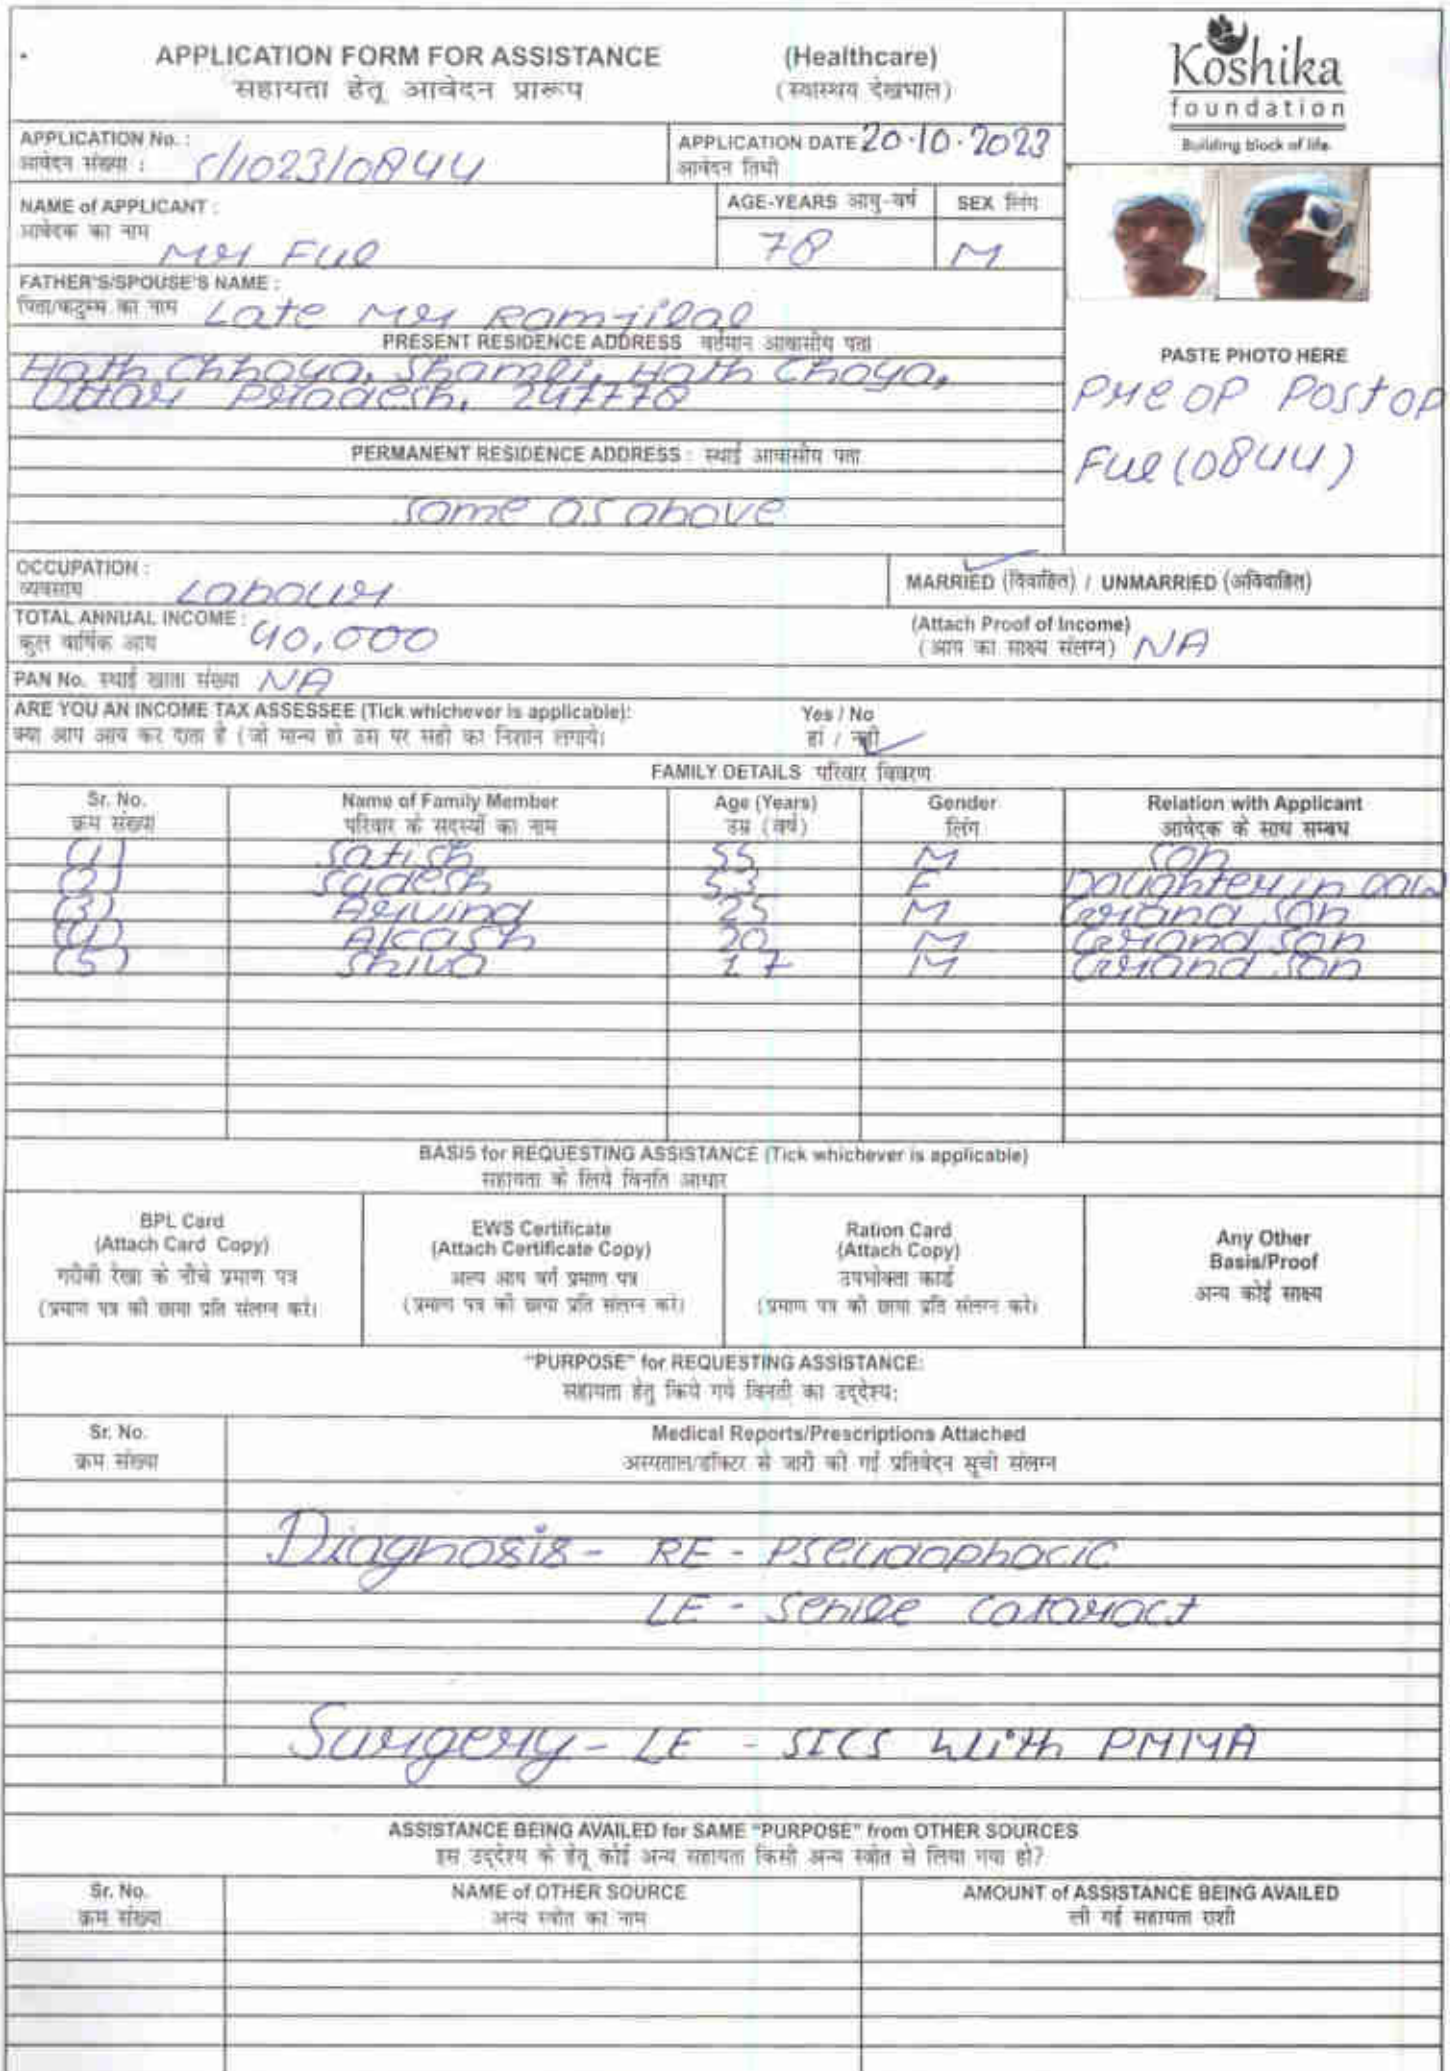 APPLICATION FORM FOR ASSISTANCE (Healthcare)
सहायता हेतू आवेदन प्रारूप (स्वास्थय देखभाल)
Koshika
foundation
Building block of life.
APPLICATION No. :
आवेदन संख्या : C/1023/0844
APPLICATION DATE 20.10.2023
आवेदन तिथी
NAME of APPLICANT :
आवेदक का नाम
Mr Ful
AGE-YEARS आयु-वर्ष
78
SEX लिंग
M
FATHER'S/SPOUSE'S NAME :
पिता/कटुम्ब का नाम Late Mr Ramjilal
PRESENT RESIDENCE ADDRESS वर्तमान आवासीय पता
Hath Chhoya, Shamli, Hath Choya,
Uttar Pradesh, 247778
PASTE PHOTO HERE
Pre op Post op
Ful (0844)
PERMANENT RESIDENCE ADDRESS : स्थाई आवासीय पता
Same as above
OCCUPATION :
व्यवसाय Labour
MARRIED (विवाहित) / UNMARRIED (अविवाहित)
TOTAL ANNUAL INCOME :
कुल वार्षिक आय 40,000
(Attach Proof of Income)
(आय का साक्ष्य संलग्न) NA
PAN No. स्थाई खाता संख्या NA
ARE YOU AN INCOME TAX ASSESSEE (Tick whichever is applicable): Yes / No
क्या आप आय कर दाता है (जो मान्य हो उस पर सही का निशान लगाये। हां / नहीं
FAMILY DETAILS परिवार विवरण
Sr. No. Name of Family Member Age (Years) Gender Relation with Applicant
क्रम संख्या परिवार के सदस्यों का नाम उम्र (वर्ष) लिंग आवेदक के साथ सम्बध
(1) Satish 55 M Son
(2) Sudesh 53 F Daughter in law
(3) Arvind 25 M Grand son
(4) Akash 20 M Grand son
(5) Shiva 17 M Grand son
BASIS for REQUESTING ASSISTANCE (Tick whichever is applicable)
सहायता के लिये विनति आधार
BPL Card
(Attach Card Copy)
गरीबी रेखा के नीचे प्रमाण पत्र
(प्रमाण पत्र की छाया प्रति संलग्न करे।
EWS Certificate
(Attach Certificate Copy)
अल्प आय वर्ग प्रमाण पत्र
(प्रमाण पत्र की छाया प्रति संलग्न करे।
Ration Card
(Attach Copy)
उपभोक्ता कार्ड
(प्रमाण पत्र की छाया प्रति संलग्न करे।
Any Other
Basis/Proof
अन्य कोई साक्ष्य
"PURPOSE" for REQUESTING ASSISTANCE:
सहायता हेतु किये गये विनती का उद्देश्य:
Sr. No. Medical Reports/Prescriptions Attached
क्रम संख्या अस्पताल/डॉक्टर से जारी की गई प्रतिवेदन सूची संलग्न
Diagnosis - RE - Pseudophacic
LE - Senile Cataract
Surgery - LE - SICS with PMMA
ASSISTANCE BEING AVAILED for SAME "PURPOSE" from OTHER SOURCES
इस उद्देश्य के हेतू कोई अन्य सहायता किसी अन्य स्त्रोत से लिया गया हो?
Sr. No. NAME of OTHER SOURCE AMOUNT of ASSISTANCE BEING AVAILED
क्रम संख्या अन्य स्त्रोत का नाम ली गई सहायता राशी